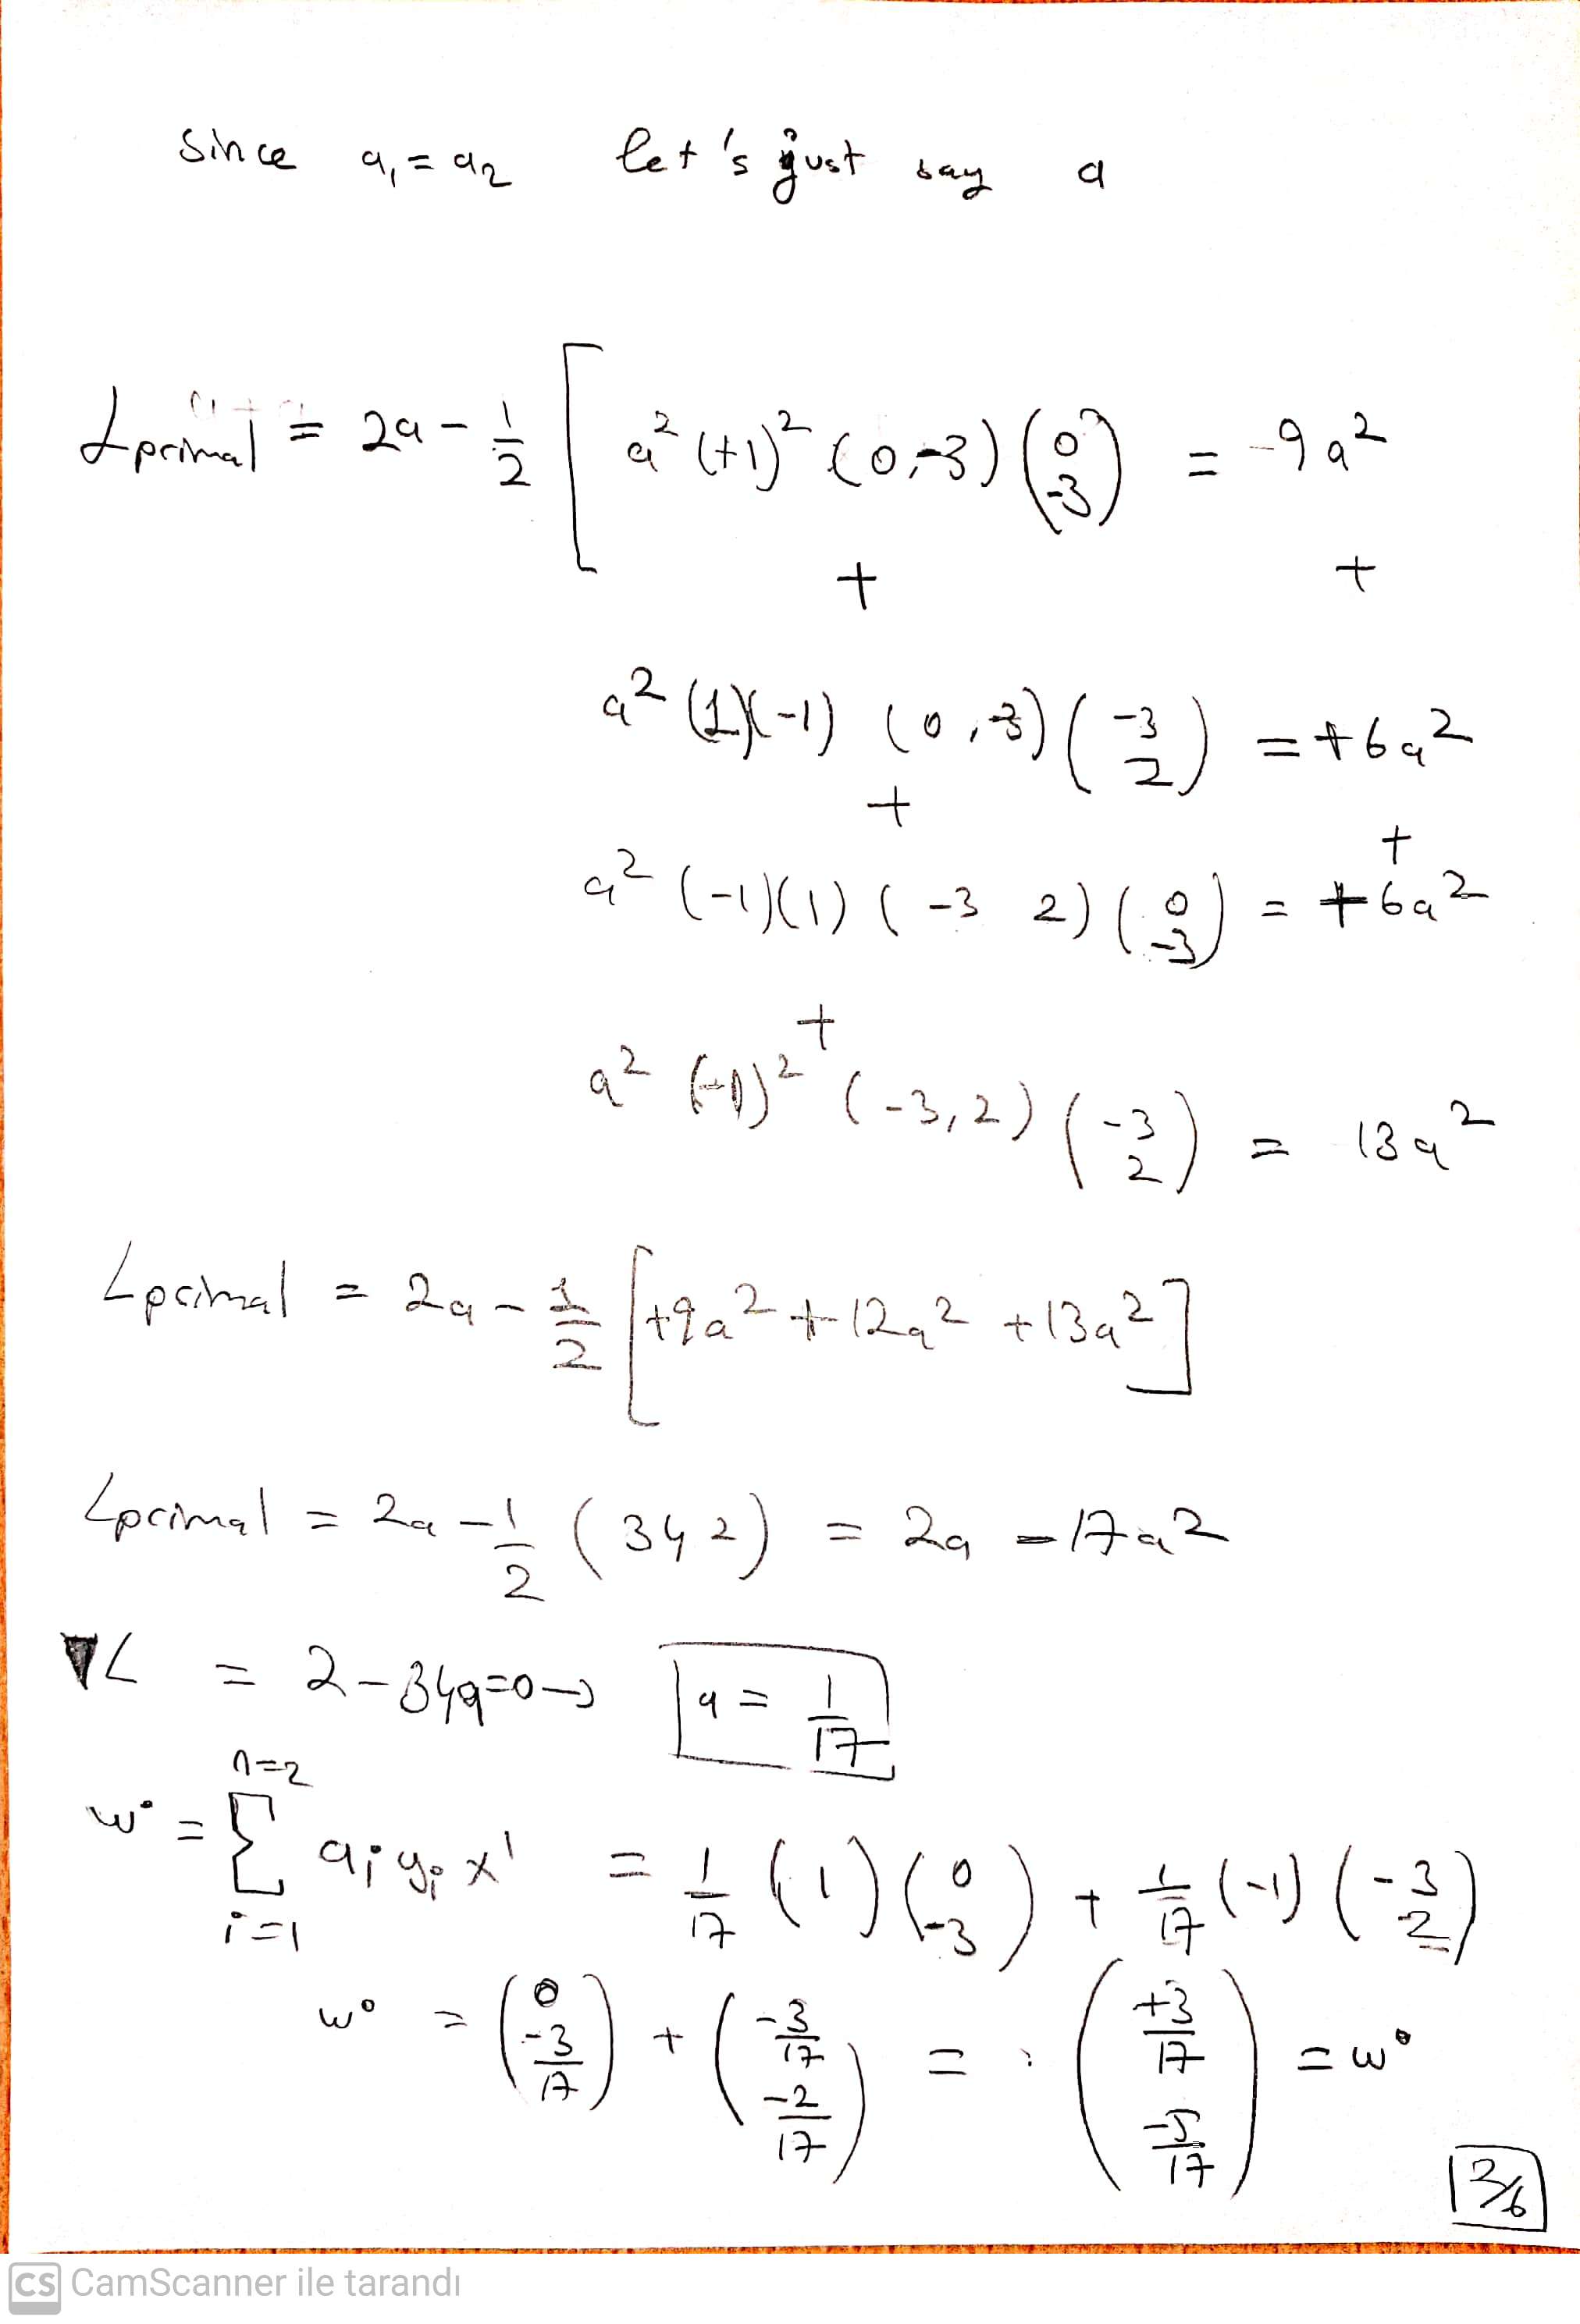 Since a₁ = a₂ let's just say a
Lprimal = 2a - 1/2 [ a² (+1)² (0,-3) (0 -3) = -9a²
+ +
a² (1)(-1) (0,-3) (-3 2) = +6a²
+ +
a² (-1)(1) (-3 2) (0 -3) = +6a²
+
a² (-1)² (-3,2) (-3 2) = 13a²
Lprimal = 2a - 1/2 [+9a² + 12a² + 13a²]
Lprimal = 2a - 1/2 (34²) = 2a - 17a²
∇L = 2 - 34a = 0 → a = 1/17
n=2
w° = Σ aᵢ yᵢ xⁱ = 1/17 (1) (0 -3) + 1/17 (-1) (-3 2)
i=1
w° = (0 -3/17) + (-3/17 -2/17) = (+3/17 -5/17) = w°
2/6
CS CamScanner ile tarandı